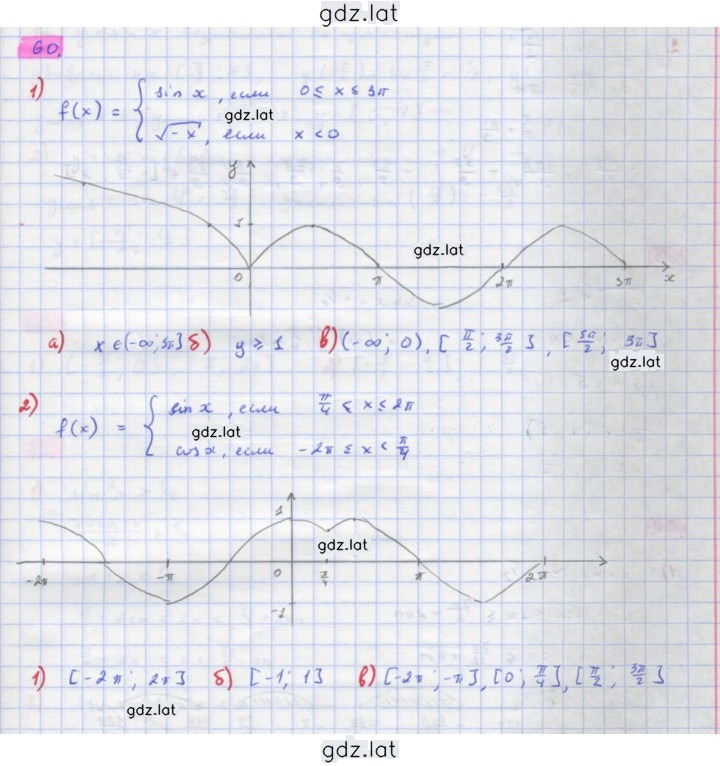 gdz.lat
60.
1) f(x) = { sin x, если 0 ≤ x ≤ 3π
gdz.lat
√-x, если x < 0
y
1
gdz.lat
0 π 2π 3π x
а) x ∈ (-∞; 3π] б) y ≥ 1 в) (-∞; 0), [π/2; 3π/2], [5π/2; 3π]
gdz.lat
2) f(x) = { sin x, если π/4 ≤ x ≤ 2π
gdz.lat
cos x, если -2π ≤ x < π/4
1
gdz.lat
-2π -π 0 π/4 π 2π
-1
1) [-2π; 2π] б) [-1; 1] в) [-2π; -π], [0; π/4], [π/2; 3π/2]
gdz.lat
gdz.lat